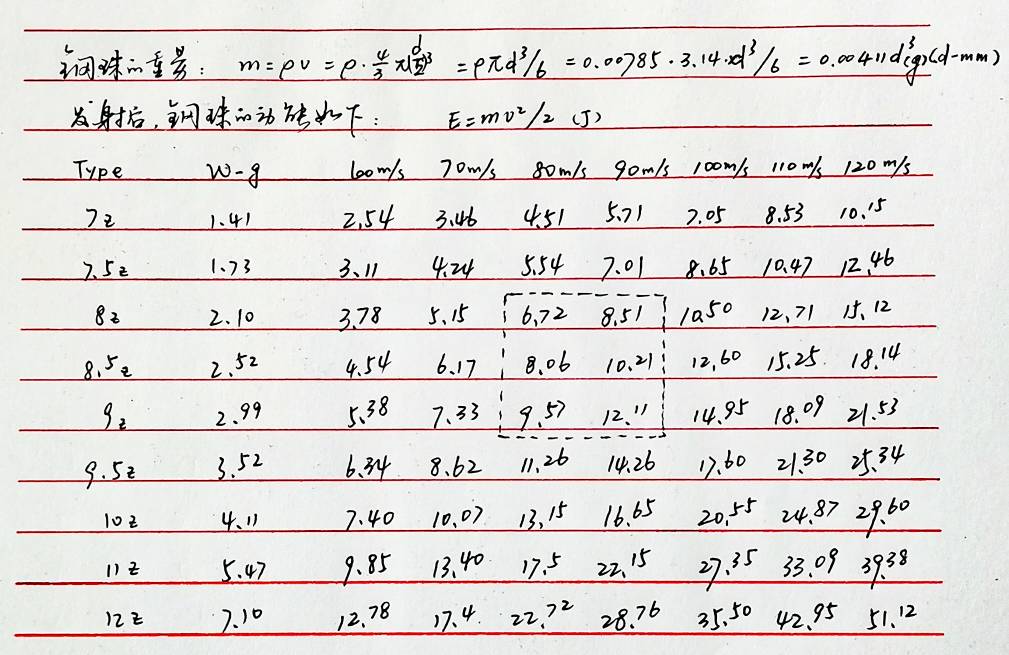 钢球的重量: m=ρv=ρ·4/3π(d/2)³ =ρπd³/6 =0.00785·3.14·xd³/6 =0.00411d³(g)(d-mm)
发射后,钢球的动能如下: E=mv²/2 (J)
Type w-g 60m/s 70m/s 80m/s 90m/s 100m/s 110m/s 120m/s
7z 1.41 2.54 3.46 4.51 5.71 7.05 8.53 10.15
7.5z 1.73 3.11 4.24 5.54 7.01 8.65 10.47 12.46
8z 2.10 3.78 5.15 6.72 8.51 10.50 12.71 15.12
8.5z 2.52 4.54 6.17 8.06 10.21 12.60 15.25 18.14
9z 2.99 5.38 7.33 9.57 12.11 14.95 18.09 21.53
9.5z 3.52 6.34 8.62 11.26 14.26 17.60 21.30 25.34
10z 4.11 7.40 10.07 13.15 16.65 20.55 24.87 29.60
11z 5.47 9.85 13.40 17.5 22.15 27.35 33.09 39.38
12z 7.10 12.78 17.4 22.72 28.76 35.50 42.95 51.12